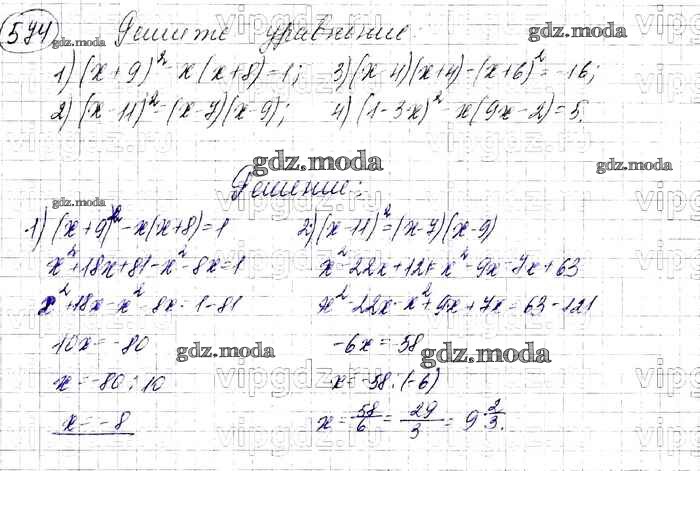 574
Решите уравнение:
1) (x+9)² - x(x+8)=1; 3)(x-4)(x+4)-(x+6)²=-16;
2) (x-11)²=(x-7)(x-9); 4) (1-3x)² - x(9x-2)=5.
gdz.moda
Решение:
1) (x+9)² - x(x+8)=1 2) (x-11)²=(x-7)(x-9)
x²+18x+81-x²-8x=1 x²-22x+121=x²-9x-7x+63
x²+18x-x²-8x=1-81 x²-22x-x²+9x+7x=63-121
10x=-80 -6x=-58
x=-80:10 x=-58:(-6)
x=-8 x=58/6=29/3=9 2/3.
gdz.moda
vipgdz.ru